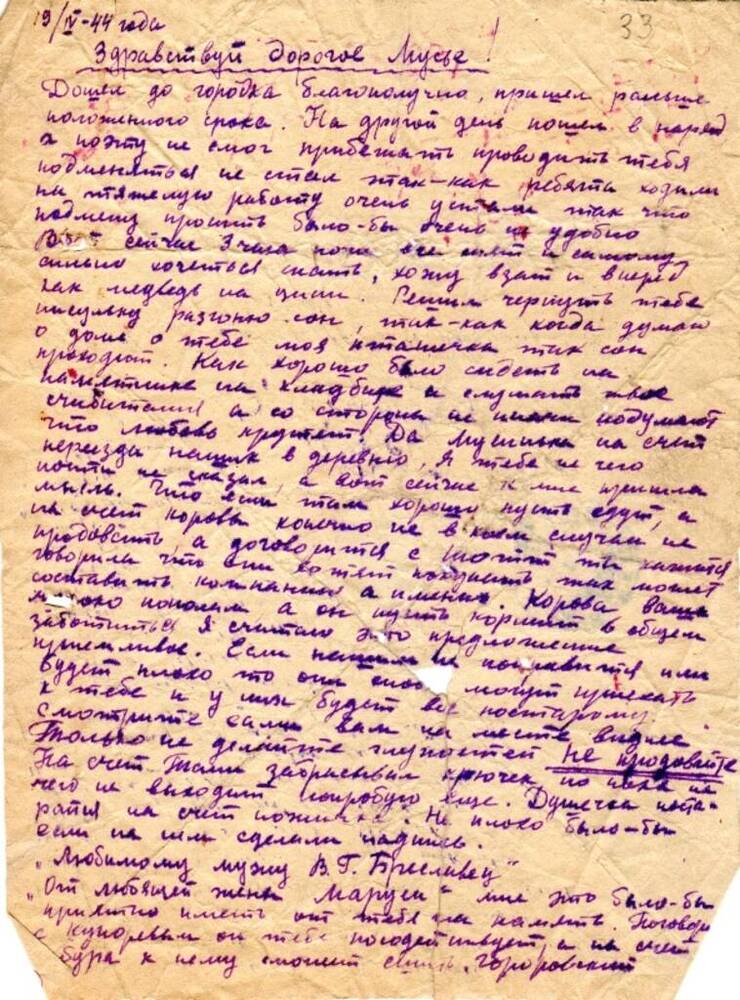 19/IV-44 года
33
Здравствуй дорогое Мусье!
Дошел до городка благополучно, пришел раньше
положенного срока. На другой день пошел в наряд
а поэту не смог прибежать проводить тебя
подменяться не стал так-как ребята ходили
на тяжелую работу очень устали так что
подмену просить было-бы очень не удобно
Вот сейчас 3 часа ночи все спят и самому
сильно хочеться спать, хожу взат и вперед
как медведь на цепи. Решил черкнуть тебе
писульку разгоню сон, так-как когда думаю
о доме о тебе моя пташечка так сон
проходит. Как хорошо было сидеть на
памятнике на кладбище и слушать твое
а со стороны не иначе подумают
что любовь крутит. Да Мусинька на счет
переезда наших в деревню, я тебе не чего
почти не сказал, а вот сейчас к мне пришла
мысль. Что если там хорошо пусть едут, а
на счет коровы конечно не в коем случаи не
продовать, а договорится с ты кажится
говорила что они хотят покупать так может
составить компанию а именно. Корова ваша
молоко пополам а он пусть кормит в общем
заботиться. Я считаю это предложение
приемливое. Если нашим не понравится или
будет плохо то они могут приехать
к тебе и у нас будет все постарому.
Смотрите сами вам на месте виднее
Только не делайте глупостей не продовайте
На счет Тами забрасывал крючек но пока ни
чего не выходит попробую еще. Душечка поста-
ратся на счет ножичка. Не плохо было-бы
если на нем сделали надпись.
„Любимому мужу В.Г. Бреславец"
„От любящей жены Маруси" мне это было-бы
приятно иметь от тебя на память. Поговори
с он тебе посодействует, а на счет
бура к нему сможет